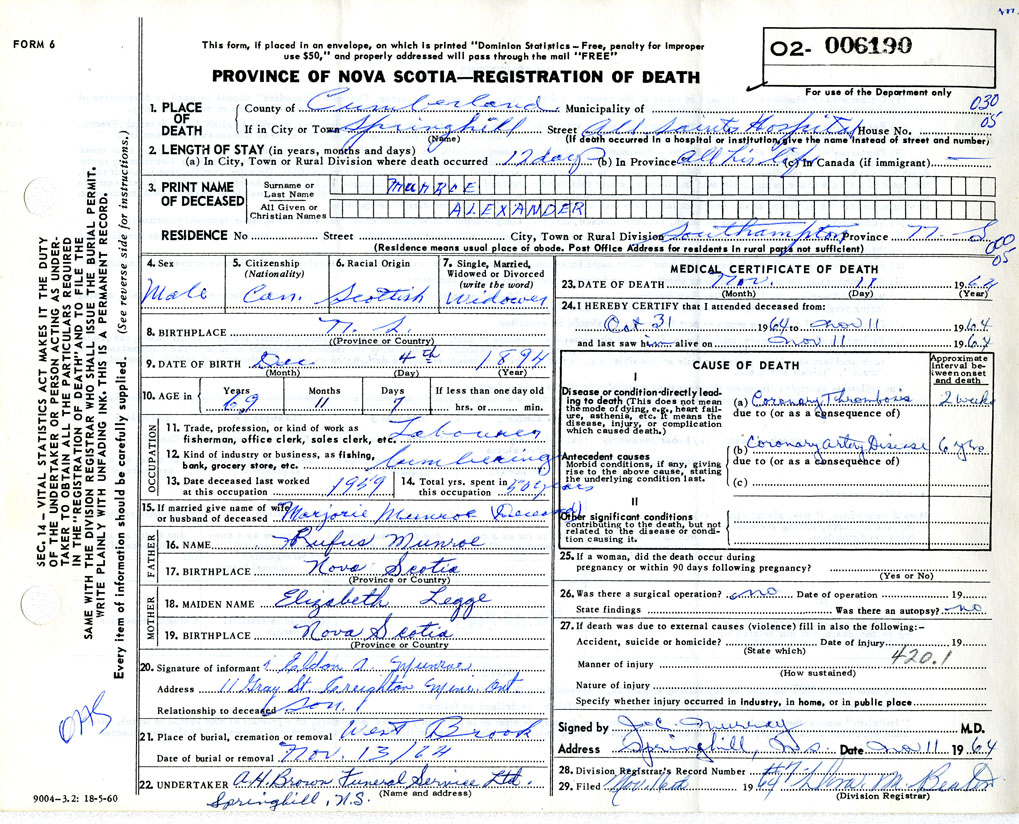 FORM 6
This form, if placed in an envelope, on which is printed "Dominion Statistics – Free, penalty for improper
use $50," and properly addressed will pass through the mail "FREE"
PROVINCE OF NOVA SCOTIA—REGISTRATION OF DEATH
O2- 006190
For use of the Department only
030
05
SEC. 14 – VITAL STATISTICS ACT MAKES IT THE DUTY
OF THE UNDERTAKER OR PERSON ACTING AS UNDER-
TAKER TO OBTAIN ALL THE PARTICULARS REQUIRED
IN THE "REGISTRATION OF DEATH" AND TO FILE THE
SAME WITH THE DIVISION REGISTRAR WHO SHALL ISSUE THE BURIAL PERMIT.
WRITE PLAINLY WITH UNFADING INK. THIS IS A PERMANENT RECORD.
Every item of information should be carefully supplied. (See reverse side for instructions.)
1. PLACE OF DEATH
County of Cumberland Municipality of
If in City or Town Springhill Street All Saints Hospital House No.
(Name) (If death occurred in a hospital or institution, give the name instead of street and number)
2. LENGTH OF STAY (in years, months and days)
(a) In City, Town or Rural Division where death occurred 12 days (b) In Province all his life (c) In Canada (if immigrant) —
3. PRINT NAME OF DECEASED
Surname or Last Name MUNROE
All Given or Christian Names ALEXANDER
RESIDENCE No Street City, Town or Rural Division Southampton Province N. S.
(Residence means usual place of abode. Post Office Address for residents in rural parts not sufficient)
000
05
4. Sex Male
5. Citizenship (Nationality) Can.
6. Racial Origin Scottish
7. Single, Married, Widowed or Divorced (write the word) Widower
8. BIRTHPLACE N. S.
(Province or Country)
9. DATE OF BIRTH Dec 4th 1894
(Month) (Day) (Year)
10. AGE in Years 69 Months 11 Days 7 If less than one day old hrs. or min.
OCCUPATION
11. Trade, profession, or kind of work as fisherman, office clerk, sales clerk, etc. Labourer
12. Kind of industry or business, as fishing, bank, grocery store, etc. Lumbering
13. Date deceased last worked at this occupation 1959
14. Total yrs. spent in this occupation 50 years
15. If married give name of wife or husband of deceased Marjorie Munroe (Deceased)
FATHER
16. NAME Rufus Munroe
17. BIRTHPLACE Nova Scotia
(Province or Country)
MOTHER
18. MAIDEN NAME Elizabeth Legge
19. BIRTHPLACE Nova Scotia
(Province or Country
20. Signature of informant Eldon A Munroe
Address 11 Gray St. Creighton Mine Ont.
Relationship to deceased Son
21. Place of burial, cremation or removal West Brook
Date of burial or removal Nov. 13/64
22. UNDERTAKER A.H. Brown Funeral Service Ltd.
(Name and address)
Springhill, N.S.
9004-3.2: 18-5-60
MEDICAL CERTIFICATE OF DEATH
23. DATE OF DEATH Nov. 11 1964
(Month) (Day) (Year)
24. I HEREBY CERTIFY that I attended deceased from:
Oct 31 1964 to Nov 11 1964
and last saw him alive on Nov 11 1964
CAUSE OF DEATH
Approximate interval between onset and death
I
Disease or condition directly leading to death (This does not mean the mode of dying, e.g., heart failure, asthenia, etc. It means the disease, injury, or complication which caused death.)
(a) Coronary Thrombosis 2 weeks
due to (or as a consequence of)
Antecedent causes
Morbid conditions, if any, giving rise to the above cause, stating the underlying condition last.
(b) Coronary Artery Disease 6 yrs
due to (or as a consequence of)
(c)
II
Other significant conditions
contributing to the death, but not related to the disease or condition causing it.
25. If a woman, did the death occur during
pregnancy or within 90 days following pregnancy?
(Yes or No)
26. Was there a surgical operation? no Date of operation 19
State findings Was there an autopsy? no
27. If death was due to external causes (violence) fill in also the following:–
Accident, suicide or homicide? Date of injury 19
(State which)
420.1
Manner of injury
(How sustained)
Nature of injury
Specify whether injury occurred in industry, in home, or in public place
Signed by J.C. Murray M.D.
Address Springhill, N.S. Date Nov 11 1964
28. Division Registrar's Record Number #7
29. Filed Nov. 16th 1964 M. Beaton
(Division Registrar)